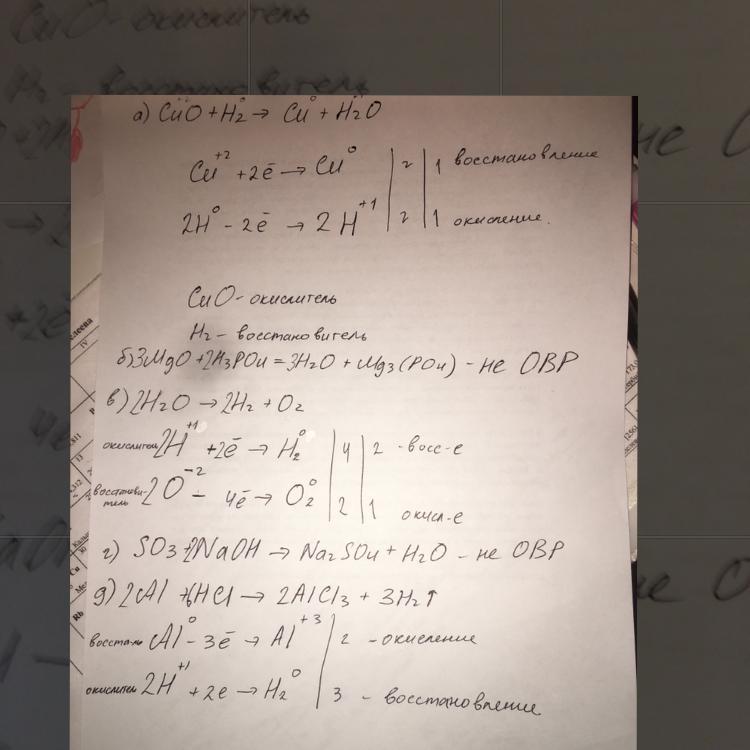 CuO - окислитель
H₂ - восстановитель
а) CuO + H₂⁰ → Cu⁰ + H₂O
Cu⁺² + 2ē → Cu⁰ | 2 | 1 восстановление
2H⁰ - 2ē → 2H⁺¹ | 2 | 1 окисление.
CuO - окислитель
H₂ - восстановитель
б) 3MgO + 2H₃PO₄ = 3H₂O + Mg₃(PO₄) - не ОВР
в) 2H₂O → 2H₂ + O₂
окислител 2H⁺¹ + 2ē → H₂⁰ | 4 | 2 - восс-е
восстанови-
тель 2O⁻² - 4ē → O₂⁰ | 2 | 1 окисл-е
г) SO₃ + 2NaOH → Na₂SO₄ + H₂O - не ОВР
д) 2Al + 6HCl → 2AlCl₃ + 3H₂↑
восст-ль Al⁰ - 3ē → Al⁺³ | 2 - окисление
окислител 2H⁺¹ + 2e → H₂⁰ | 3 - восстановление